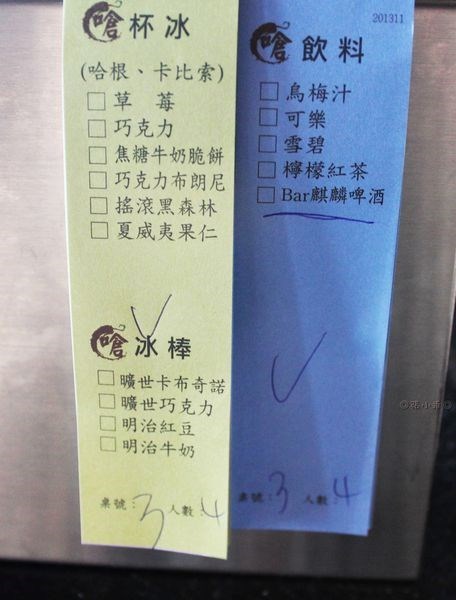 嗆杯冰
(哈根、卡比索)
□草莓
□巧克力
□焦糖牛奶脆餅
□巧克力布朗尼
□搖滾黑森林
□夏威夷果仁
嗆冰棒
□曠世卡布奇諾
□曠世巧克力
□明治紅豆
□明治牛奶
桌號：3 人數：4
201311
嗆飲料
□烏梅汁
□可樂
□雪碧
□檸檬紅茶
□Bar麒麟啤酒
桌號：3 人數：4